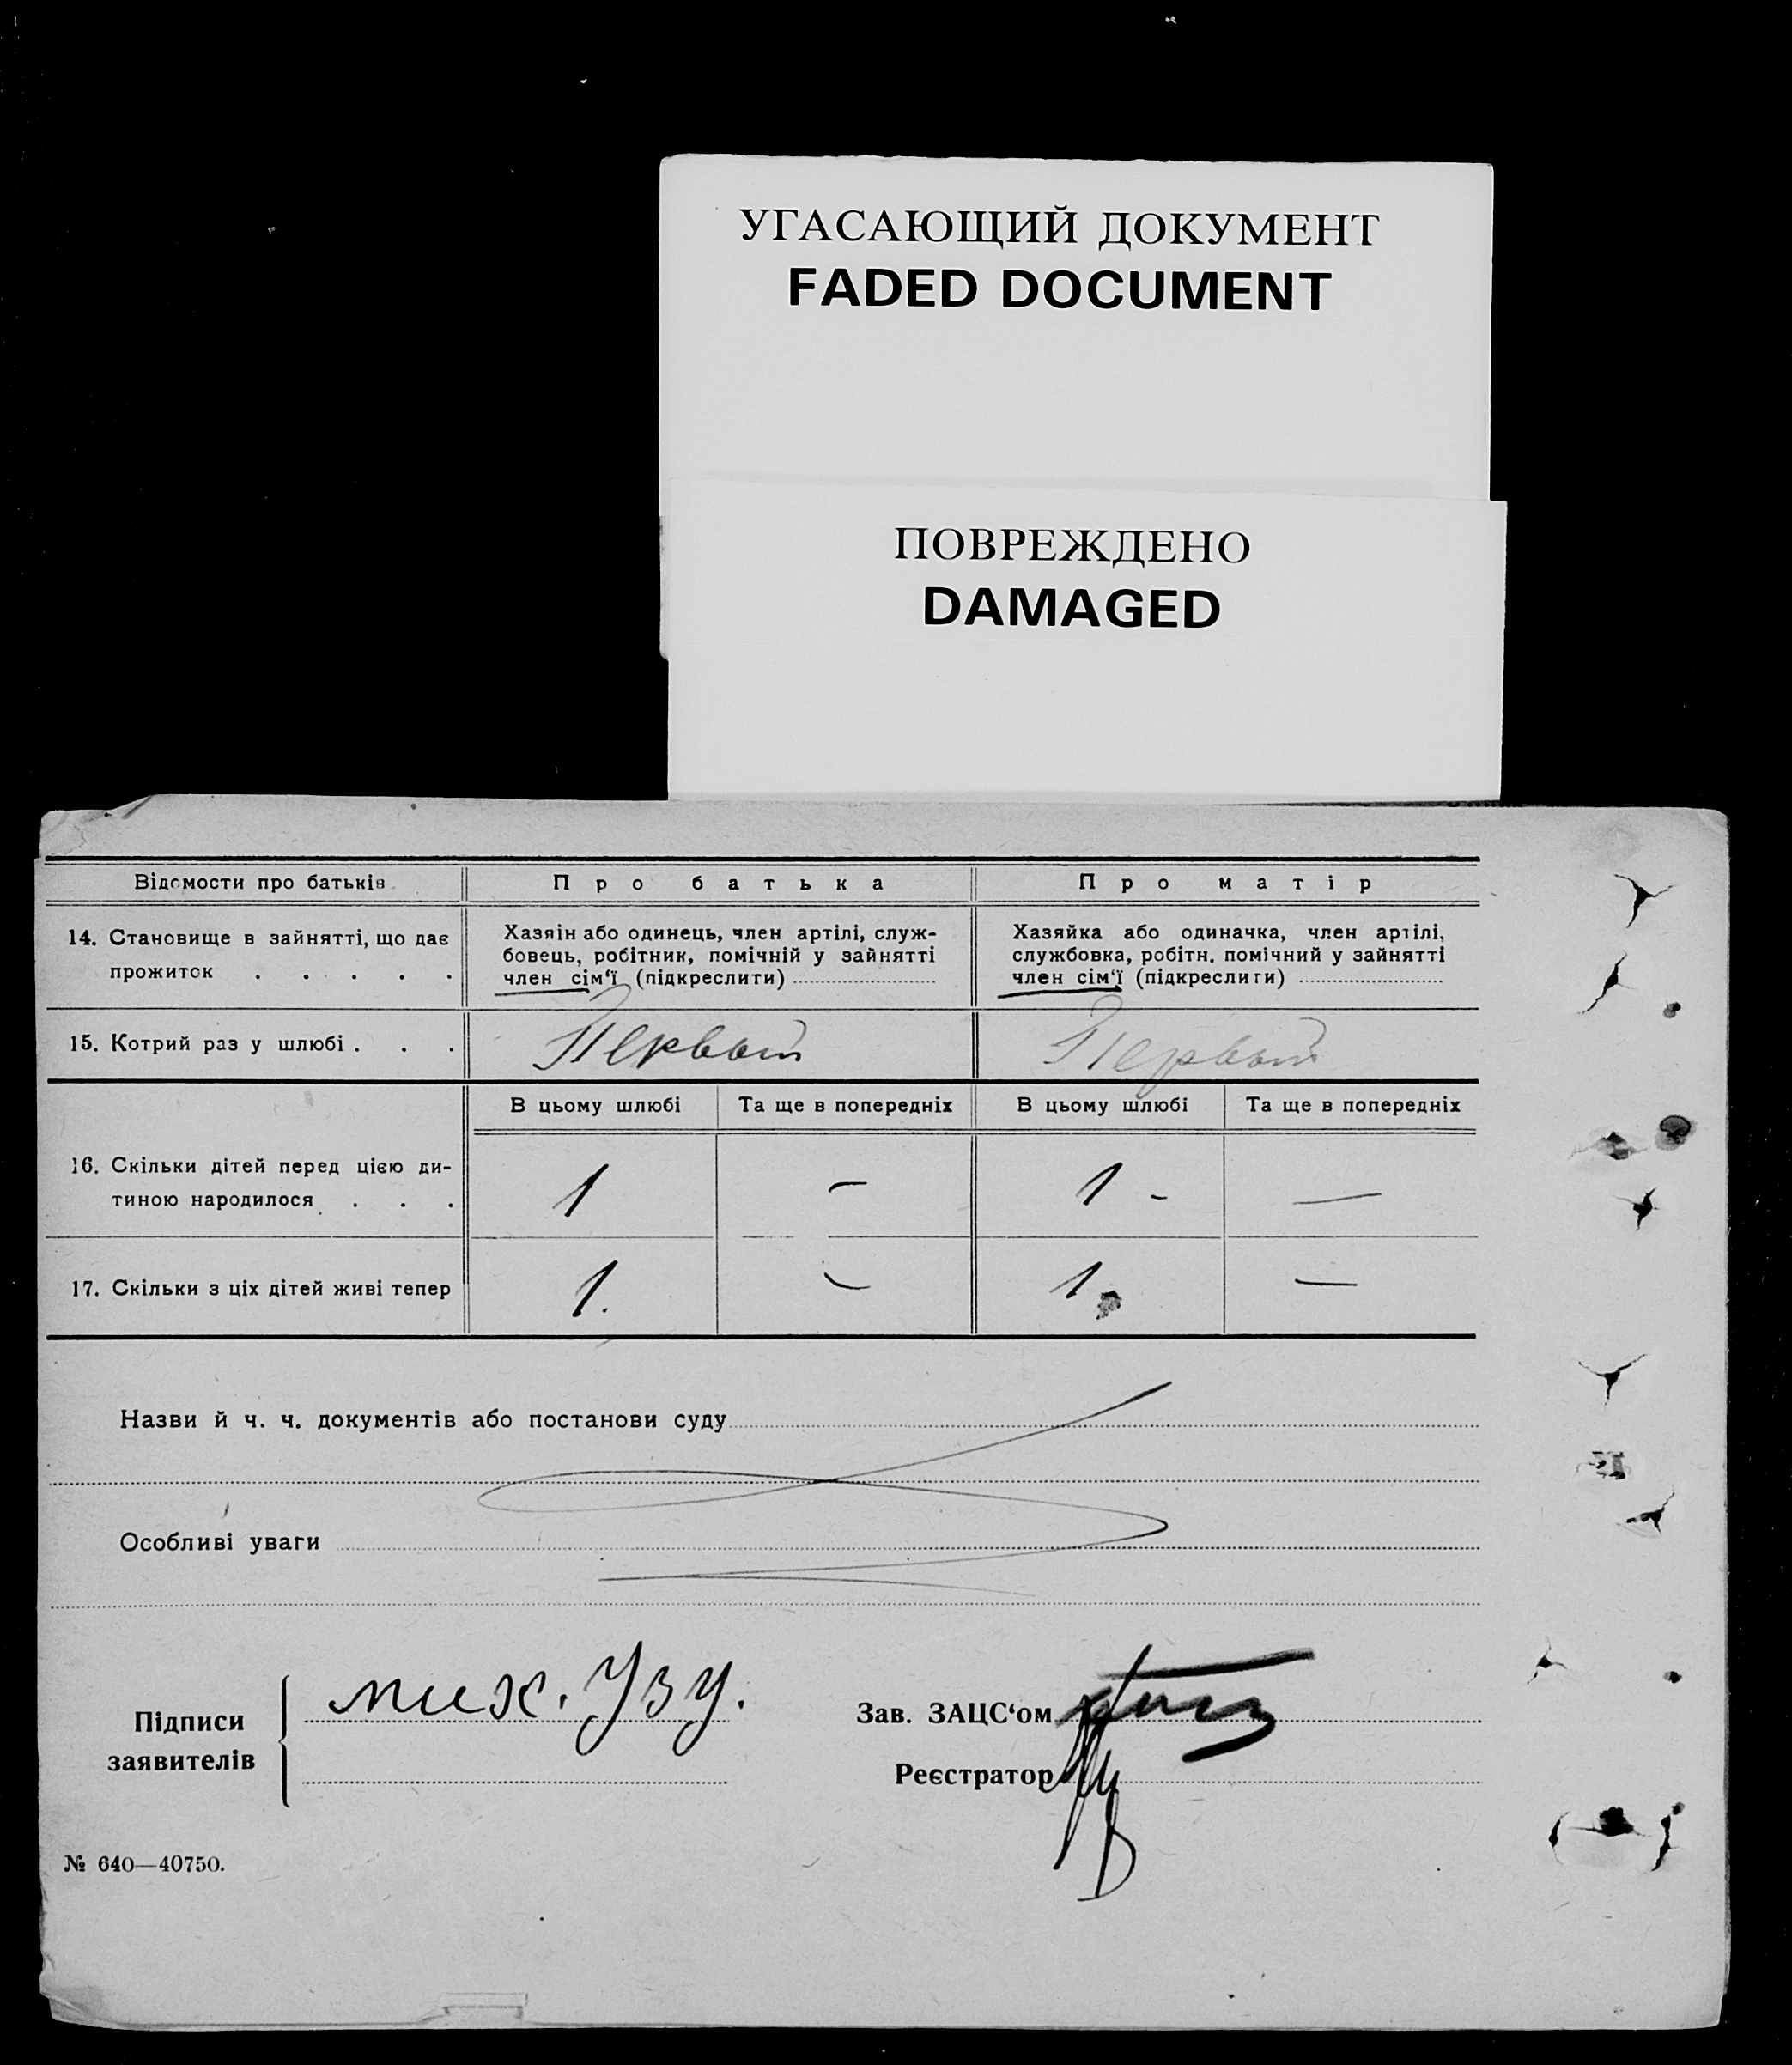 УГАСАЮЩИЙ ДОКУМЕНТ
FADED DOCUMENT
ПОВРЕЖДЕНО
DAMAGED
Відомости про батьків Про батька Про матір
14. Становище в зайнятті, що дає
прожиток . . . . .
Хазяін або одинець, член артілі, служ-
бовець, робітник, помічній у зайнятті
член сім‘ї (підкреслити)
Хазяйка або одиначка, член артілі,
службовка, робітн. помічний у зайнятті
член сім‘ї (підкреслити)
15. Котрий раз у шлюбі . . . Первый Первый
В цьому шлюбі Та ще в попередніх В цьому шлюбі Та ще в попередніх
16. Скільки дітей перед цією ди-
тиною народилося . . . 1 — 1 - —
17. Скільки з ціх дітей живі тепер 1. — 1 —
Назви й ч. ч. документів або постанови суду
Особливі уваги
Підписи
заявителів
мих. Узу.
Зав. ЗАЦС‘ом
Реєстратор
№ 640—40750.